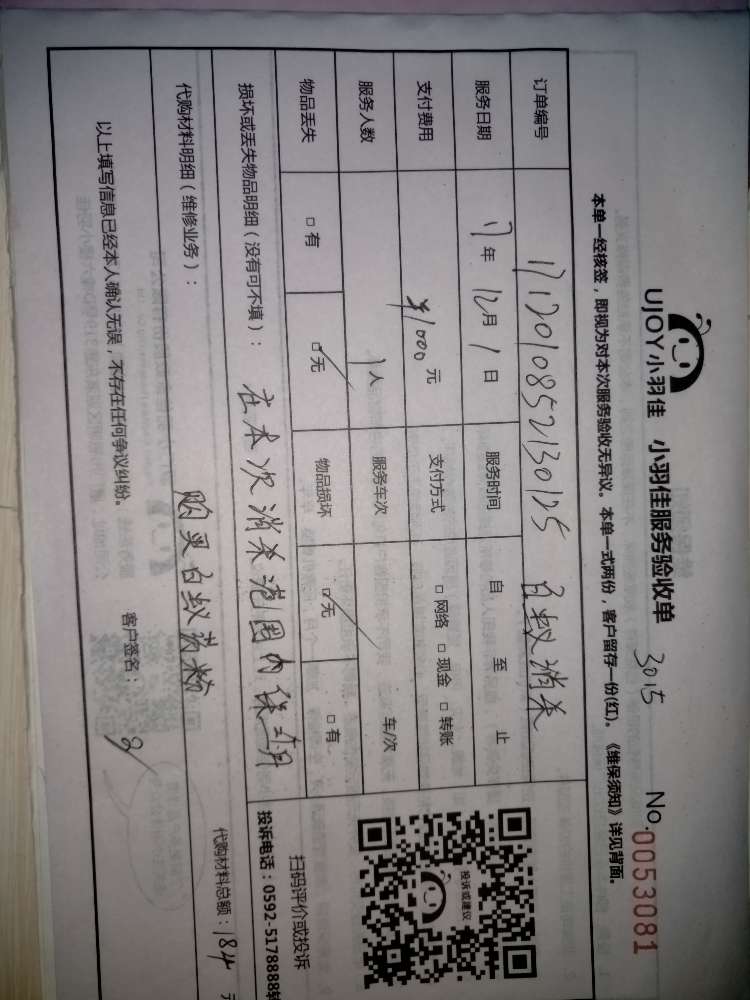 UJOY小羽佳 小羽佳服务验收单 3015 No.0053081
本单一经核签，即视为对本次服务验收无异议。本单一式两份，客户留存一份(红)。《维保须知》详见背面。
订单编号 1712010852130125 白蚁消杀
服务日期 17年 12月 1日 服务时间 自 至 止
支付费用 ¥1000 元 支付方式 □网络 □现金 □转账
服务人数 1人 服务车次 车/次
物品丢失 □有 ☑无 物品损坏 ☑无 □有
损坏或丢失物品明细（没有可不填）： 在本次消杀范围内保
代购材料明细（维修业务）： 购买白蚁药粉
代购材料总额：184 元
以上填写信息已经本人确认无误，不存在任何争议纠纷。 客户签名：
投诉或建议
扫码评价或投诉
投诉电话：0592-5178888转